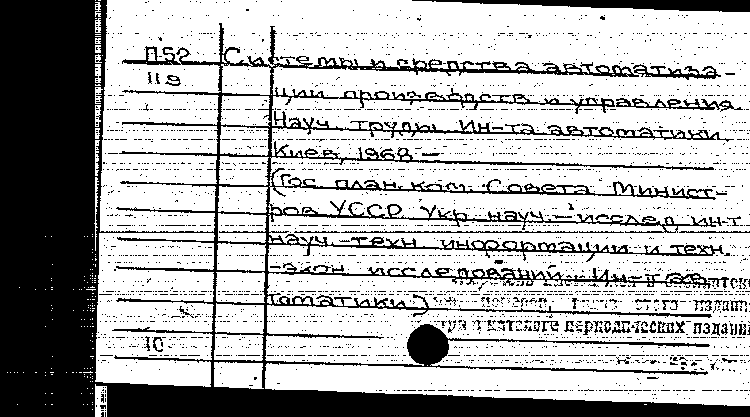 П52 Системы и средства автоматиза-
119
ции производств и управления.
Науч. труды Ин-та автоматики.
Киев, 1968 —
(Гос. план. ком. Совета Минист-
ров УССР. Укр. науч.-исслед. ин-т
науч.-техн. информации и техн.
-экон. исследований. Ин-т ав-
томатики.)
этого издания
в каталоге периодических изданий
10